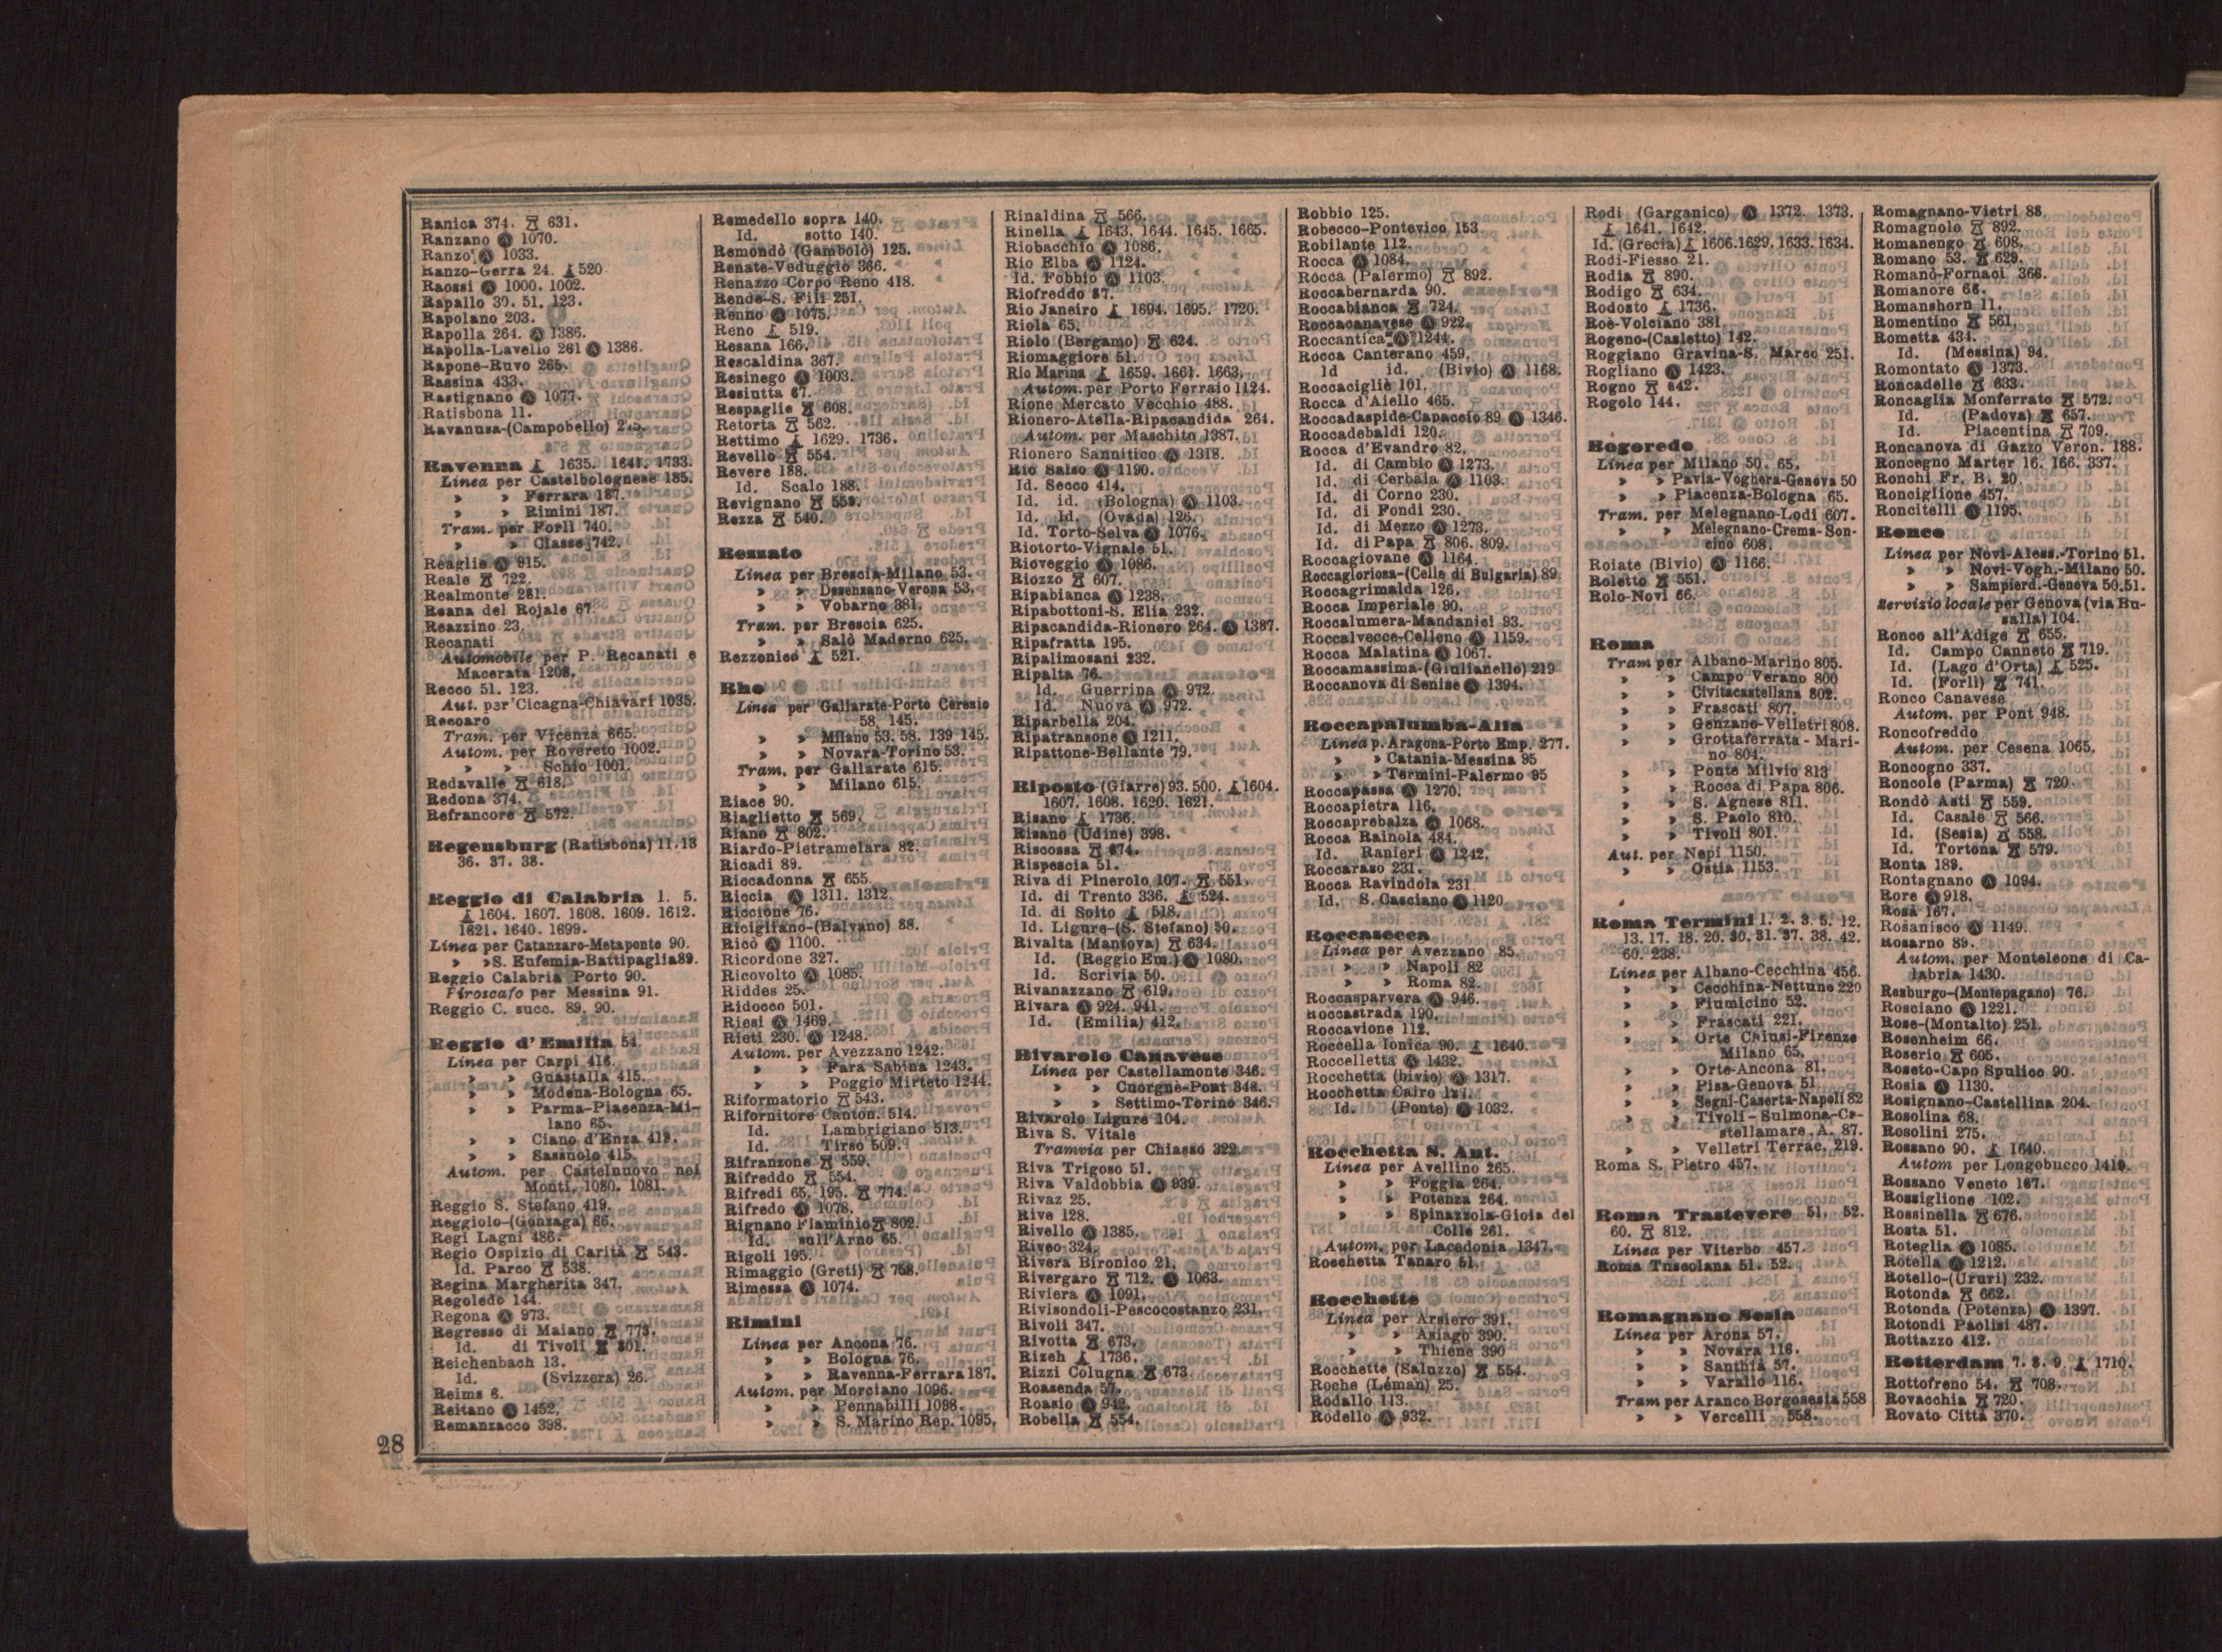 Ranica 374. 631.
Ranzano 1070.
Ranzo 1033.
Ranzo-Gerra 24. 520
Raossi 1000. 1002.
Rapallo 30. 51. 123.
Rapolano 203.
Rapolla 264. 1386.
Rapolla-Lavello 261 1386.
Rapone-Ruvo 265.
Rassina 433.
Rastignano 1077.
Ratisbona 11.
Ravanusa-(Campobello)
Ravenna 1635. 1641. 1733.
Linea per Castelbolognese 185.
» » Ferrara 187.
» » Rimini 187.
Tram. per Forlì 740.
» » Classe 742.
Reaglie 915.
Reale 722.
Realmonte 281.
Reana del Rojale 67.
Reazzino 23.
Recanati
Automobile per P. Recanati e
Macerata 1208.
Recco 51. 123.
Aut. per Cicagna-Chiavari 1035.
Recoaro
Tram. per Vicenza 665.
Autom. per Rovereto 1002.
» » Schio 1001.
Redavalle 618.
Redona 374.
Refrancore 572.
Regensburg (Ratisbona) 11.13
36. 37. 38.
Reggio di Calabria 1. 5.
1604. 1607. 1608. 1609. 1612.
1621. 1640. 1699.
Linea per Catanzaro-Metaponto 90.
» » S. Eufemia-Battipaglia 89.
Reggio Calabria Porto 90.
Piroscafo per Messina 91.
Reggio C. succ. 89. 90.
Reggio d'Emilia 54.
Linea per Carpi 416.
» » Guastalla 415.
» » Modena-Bologna 65.
» » Parma-Piacenza-Mi-
lano 65.
» » Ciano d'Enza 419.
» » Sassuolo 415.
Autom. per Castelnuovo nei
Monti, 1080. 1081.
Reggio S. Stefano 419.
Reggiolo-(Gonzaga) 66.
Regi Lagni 486.
Regio Ospizio di Carità 543.
Id. Parco 538.
Regina Margherita 347.
Regoledo 144.
Regona 973.
Regresso di Maiano 773.
Id. di Tivoli 801.
Reichenbach 13.
Id. (Svizzera) 26.
Reims 6.
Reitano 1452.
Remanzacco 398.
Remedello sopra 140.
Id. sotto 140.
Remondò (Gambolò) 125.
Renate-Veduggio 366.
Renazzo Corpo Reno 418.
Rende-S. Fili 251.
Renno 1075.
Reno 519.
Resana 166.
Rescaldina 367.
Resinego 1003.
Resiutta 67.
Respaglie 608.
Retorta 562.
Rettimo 1629. 1736.
Revello 554.
Revere 188.
Id. Scalo 188.
Revignano 559.
Rezza 540.
Rezzato
Linea per Brescia-Milano 53.
» » Desenzano-Verona 53.
» » Vobarno 381.
Tram. per Brescia 625.
» » Salò Maderno 625.
Rezzonico 521.
Rho
Linea per Gallarate-Porto Ceresio
58. 145.
» » Milano 53. 58. 139 145.
» » Novara-Torino 53.
Tram. per Gallarate 615.
» » Milano 615.
Riace 90.
Riaglietto 569.
Riano 802.
Riardo-Pietramelara 82.
Ricadi 89.
Riccadonna 655.
Riccia 1311. 1312.
Riccione 76.
Ricigliano-(Balvano) 88.
Ricò 1100.
Ricordone 327.
Ricovolto 1085.
Riddes 25.
Ridocco 501.
Riesi 1469.
Rieti 230. 1248.
Autom. per Avezzano 1242.
» » Fara Sabina 1243.
» » Poggio Mirteto 1244.
Riformatorio 543.
Rifornitore Canton. 514.
Id. Lambrigiano 513.
Id. Tirso 509.
Rifranzone 559.
Rifreddo 554.
Rifredi 65. 195. 774.
Rifredo 1078.
Rignano Flaminio 802.
Id. sull'Arno 65.
Rigoli 195.
Rimaggio (Greti) 768.
Rimessa 1074.
Rimini
Linea per Ancona 76.
» » Bologna 76.
» » Ravenna-Ferrara 187.
Autom. per Morciano 1096.
» » Pennabilli 1098.
» » S. Marino Rep. 1095.
Rinaldina 566.
Rinella 1643. 1644. 1645. 1665.
Riobacchio 1086.
Rio Elba 1124.
Id. Fobbio 1103.
Riofreddo 87.
Rio Janeiro 1694. 1695. 1720.
Riola 65.
Riolo (Bergamo) 624.
Riomaggiore 51.
Rio Marina 1659. 1661. 1663.
Autom. per Porto Ferraio 1124.
Rione Mercato Vecchio 488.
Rionero-Atella-Ripacandida 264.
Autom. per Maschito 1387.
Rionero Sannitico 1318.
Rio Salso 1190.
Id. Secco 414.
Id. id. (Bologna) 1103.
Id. id. (Ovada) 126.
Id. Torto-Selva 1076.
Riotorto-Vignale 51.
Rioveggio 1086.
Riozzo 607.
Ripabianca 1238.
Ripabottoni-S. Elia 232.
Ripacandida-Rionero 264. 1387.
Ripafratta 195.
Ripalimosani 232.
Ripalta 76.
Id. Guerrina 972.
Id. Nuova 972.
Riparbella 204.
Ripatransone 1211.
Ripattone-Bellante 79.
Riposto (Giarre) 93. 500. 1604.
1607. 1608. 1620. 1621.
Risano 1736.
Risano (Udine) 398.
Riscossa 674.
Rispescia 51.
Riva di Pinerolo 107. 551.
Id. di Trento 336. 524.
Id. di Solto 518.
Id. Ligure-(S. Stefano) 50.
Rivalta (Mantova) 634.
Id. (Reggio Em.) 1080.
Id. Scrivia 50.
Rivanazzano 619.
Rivara 924. 941.
Id. (Emilia) 412.
Rivarolo Canavese
Linea per Castellamonte 346.
» » Cuorgnè-Pont 346.
» » Settimo-Torino 346.
Rivarolo Ligure 104.
Riva S. Vitale
Tramvia per Chiasso 322.
Riva Trigoso 51.
Riva Valdobbia 939.
Rivaz 25.
Rive 128.
Rivello 1385.
Riveo 324.
Rivera Bironico 21.
Rivergaro 712. 1063.
Riviera 1091.
Rivisondoli-Pescocostanzo 231.
Rivoli 347.
Rivotta 673.
Rizeh 1736.
Rizzi Colugna 673
Roasenda 57.
Roasio 942.
Robella 554.
Robbio 125.
Robecco-Pontevico 153
Robilante 112.
Rocca 1084.
Rocca (Palermo) 892.
Roccabernarda 90.
Roccabianca 724.
Roccacanavese 922.
Roccantica 1244.
Rocca Canterano 459.
Id id. (Bivio) 1168.
Roccacigliè 101.
Rocca d'Aiello 465.
Roccadaspide-Capaccio 89 1346.
Roccadebaldi 120.
Rocca d'Evandro 82.
Id. di Cambio 1273.
Id. di Cerbaia 1103.
Id. di Corno 230.
Id. di Fondi 230.
Id. di Mezzo 1273.
Id. di Papa 806. 809.
Roccagiovane 1164.
Roccagloriosa-(Celle di Bulgaria) 89
Roccagrimalda 126.
Rocca Imperiale 90.
Roccalumera-Mandanici 93.
Roccalvecce-Celleno 1159.
Rocca Malatina 1067.
Roccamassima-(Giulianello) 219
Roccanova di Senise 1394.
Roccapalumba-Alia
Linea p. Aragona-Porto Emp. 277.
» » Catania-Messina 95
» » Termini-Palermo 95
Roccapassa 1270.
Roccapietra 116.
Roccaprebalza 1068.
Rocca Rainola 484.
Id. Ranieri 1242.
Roccaraso 231.
Rocca Ravindola 231
Id. S. Casciano 1120
Roccasecca
Linea per Avezzano 85.
» » Napoli 82
» » Roma 82.
Roccasparvera 946.
Roccastrada 190.
Roccavione 112.
Roccella Ionica 90. 1640.
Roccelletta 1432.
Rocchetta (bivio) 1317.
Rocchetta Cairo 127.
Id. (Ponte) 1032.
Rocchetta S. Ant.
Linea per Avellino 265.
» » Foggia 264.
» » Potenza 264.
» » Spinazzola-Gioia del
Colle 261.
Autom. per Lacedonia 1347.
Rocchetta Tanaro 51.
Rocchette
Linea per Arsiero 391.
» » Asiago 390.
» » Thiene 390
Rocchette (Saluzzo) 554.
Roche (Léman) 25.
Rodallo 113.
Rodello 932.
Rodi (Garganico) 1372. 1373.
1641. 1642.
Id. (Grecia) 1606.1629. 1633. 1634.
Rodi-Fiesso 21.
Rodia 890.
Rodigo 634.
Rodosto 1736.
Roè-Volciano 381.
Rogeno-(Casletto) 142.
Roggiano Gravina-S. Marco 251.
Rogliano 1423.
Rogno 642.
Rogolo 144.
Rogoredo
Linea per Milano 50. 65.
» » Pavia-Voghera-Genova 50
» » Piacenza-Bologna 65.
Tram. per Melegnano-Lodi 607.
» » Melegnano-Crema-Son-
cino 608.
Roiate (Bivio) 1166.
Roletto 551.
Rolo-Novi 66.
Roma
Tram per Albano-Marino 805.
» » Campo Verano 800
» » Civitacastellana 802.
» » Frascati 807.
» » Genzano-Velletri 808.
» » Grottaferrata - Mari-
no 804.
» » Ponte Milvio 813
» » Rocca di Papa 806.
» » S. Agnese 811.
» » S. Paolo 810.
» » Tivoli 801.
Aut. per Nepi 1150.
» » Ostia 1153.
Roma Termini 1. 2. 3. 5. 12.
13. 17. 18. 20. 30. 31. 37. 38. 42.
60. 238.
Linea per Albano-Cecchina 456.
» » Cecchina-Nettuno 220
» » Fiumicino 52.
» » Frascati 221.
» » Orte Chiusi-Firenze
Milano 65.
» » Orte-Ancona 81.
» » Pisa-Genova 51
» » Segni-Caserta-Napoli 82
» » Tivoli - Sulmona-Ca-
stellamare A. 87.
» » Velletri Terrac. 219.
Roma S. Pietro 457.
Roma Trastevere 51. 52.
60. 812.
Linea per Viterbo 457.
Roma Tuscolana 51. 52.
Romagnano Sesia
Linea per Arona 57.
» » Novara 116.
» » Santhià 57.
» » Varallo 116.
Tram per Aranco Borgosesia 558
» » Vercelli 558.
Romagnano-Vietri 88
Romagnolo 892.
Romanengo 608.
Romano 53. 629.
Romanò-Fornaci 366.
Romanore 66.
Romanshorn 11.
Romentino 561.
Rometta 434.
Id. (Messina) 94.
Romontato 1373.
Roncadelle 633.
Roncaglia Monferrato 572.
Id. (Padova) 657.
Id. Piacentina 709.
Roncanova di Gazzo Veron. 188.
Roncegno Marter 16. 166. 337.
Ronchi Fr. B. 20.
Ronciglione 457.
Roncitelli 1195.
Ronco
Linea per Novi-Aless.-Torino 51.
» » Novi-Vogh.-Milano 50.
» » Sampierd.-Genova 50.51.
Servizio locale per Genova (via Bu-
salla) 104.
Ronco all'Adige 655.
Id. Campo Canneto 719.
Id. (Lago d'Orta) 525.
Id. (Forlì) 741.
Ronco Canavese
Autom. per Pont 948.
Roncofreddo
Autom. per Cesena 1065.
Roncogno 337.
Roncole (Parma) 720.
Rondò Asti 559.
Id. Casale 566.
Id. (Sesia) 558.
Id. Tortona 579.
Ronta 189.
Rontagnano 1094.
Rore 918.
Rosà 167.
Rosanisco 1149.
Rosarno 89.
Autom. per Monteleone di Ca-
labria 1430.
Rosburgo-(Montepagano) 76.
Rosciano 1221.
Rose-(Montalto) 251.
Rosenheim 66.
Roserio 605.
Roseto-Capo Spulico 90.
Rosia 1130.
Rosignano-Castellina 204.
Rosolina 68.
Rosolini 275.
Rossano 90. 1640.
Autom per Longobucco 1419.
Rossano Veneto 167.
Rossiglione 102.
Rossinella 676.
Rosta 51.
Roteglia 1085.
Rotella 1212.
Rotello-(Ururi) 232.
Rotonda 662.
Rotonda (Potenza) 1397.
Rotondi Paolisi 487.
Rottazzo 412.
Rotterdam 7. 8. 9. 1710.
Rottofreno 54. 708.
Rovacchia 720.
Rovato Città 370.
28